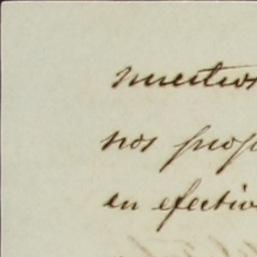 nuestros
nos prop
en efectivo